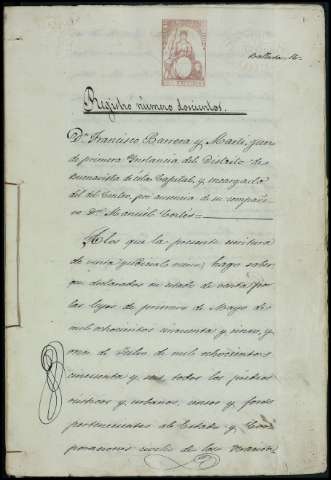 Registro número doscientos.
Dn. Francisco Barrera y Martí, juez
de primera Instancia del Distrito de
Buenavista de esta Capital, y encargado
del del Centro, por ausencia de su compañe-
ro Dn. Manuel Cortés
A los que la presente escritura
de venta judicial vieren, hago saber
que declarados en estado de venta por
las leyes de primero de Mayo de
mil ochocientos cincuenta y cinco, y
once de Julio de mil ochocientos
cincuenta y seis todos los predios
rústicos y urbanos, censos y foros
pertenecientes al Estado y Cor-
poraciones civiles de la Nación